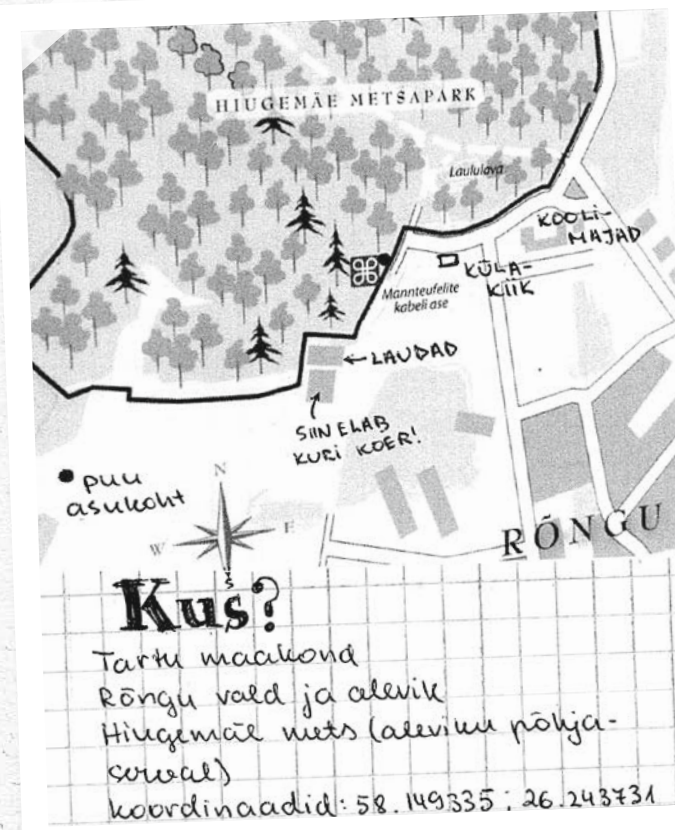 HIUGEMÄE METSAPARK
Laululava
KOOLI-
MAJAD
KÜLA-
KIIK
Mannteufelite
kabeliase
LAUDAD
SIIN ELAB
KURI KOER!
puu
asukoht
N
W
E
S
RÕNGU
Kus?
Tartu maakond
Rõngu vald ja alevik
Hiugemäe mets (aleviku põhja-
serval)
koordinaadid: 58.149335; 26.243731